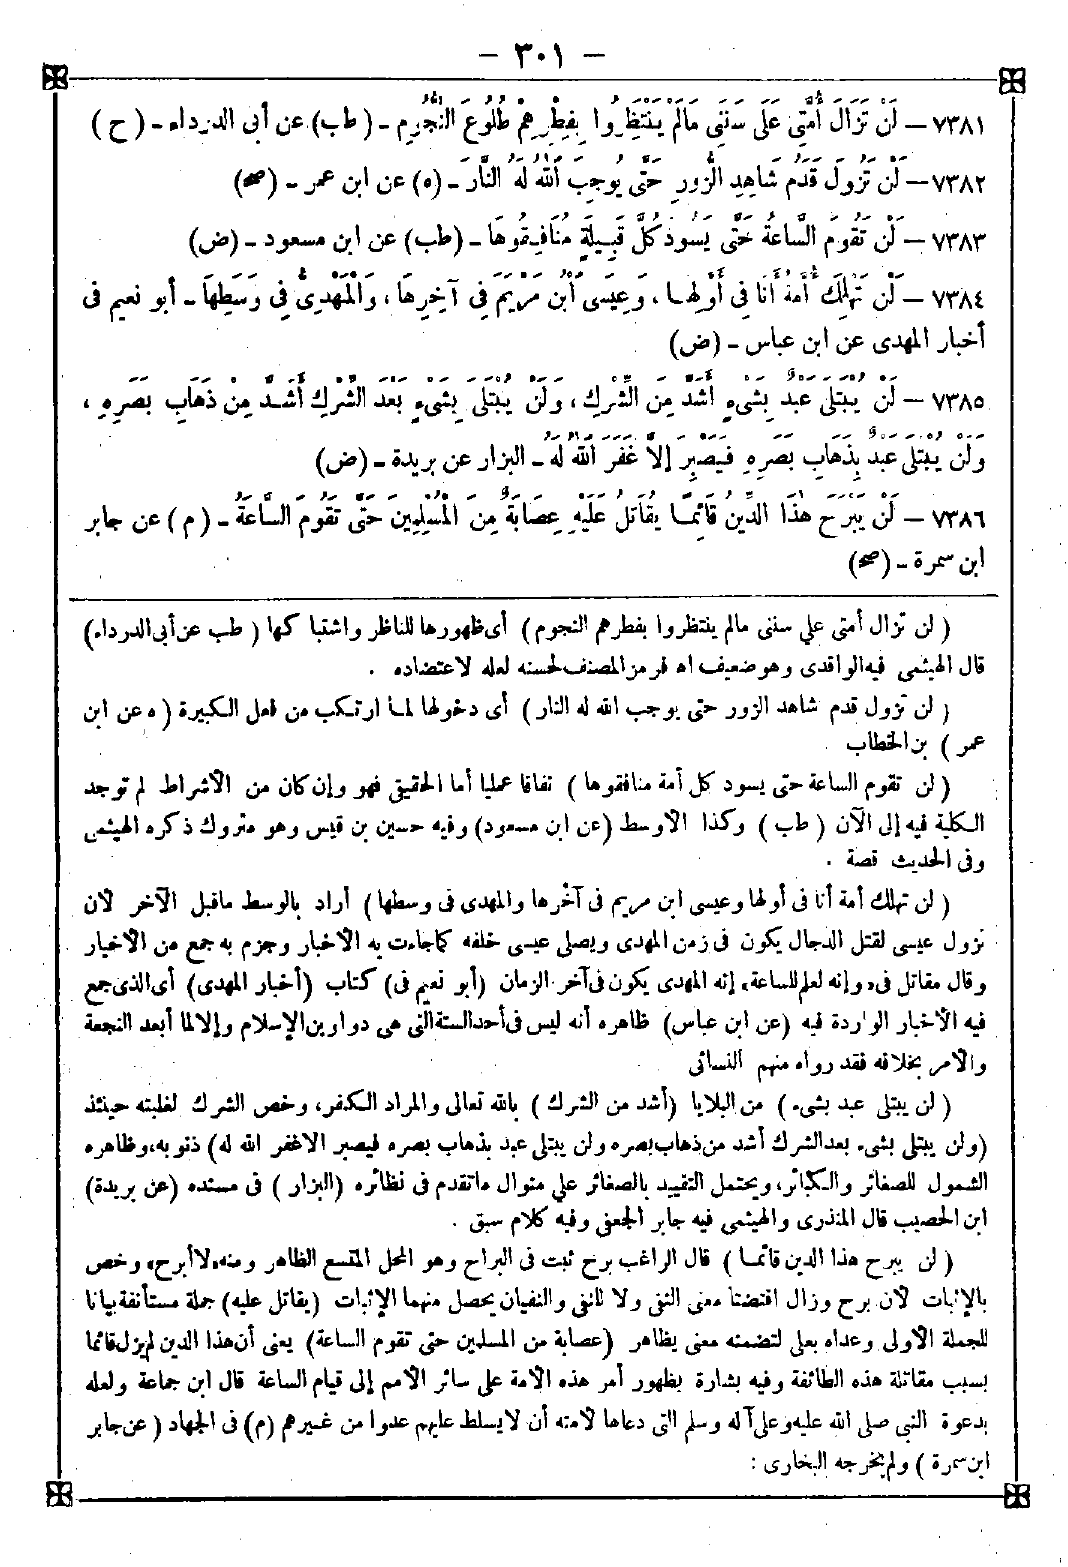 – ٣٠١ –
٧٣٨١ – لَنْ تَزَالَ أُمَّتِى عَلَى سُنَّتِى مَالَمْ يَنْتَظِرُوا بِفِطْرِهِمْ طُلُوعَ النُّجُومِ - (طب) عن أبى الدرداء - (ح)
٧٣٨٢ – لَنْ تَزُولَ قَدَمُ شَاهِدِ الزُّورِ حَتَّى يُوجِبَ اللهُ لَهُ النَّارَ - (ه) عن ابن عمر - (صح)
٧٣٨٣ – لَنْ تَقُومَ السَّاعَةُ حَتَّى يَسُودَ كُلَّ قَبِيلَةٍ مُنَافِقُوهَا - (طب) عن ابن مسعود - (ض)
٧٣٨٤ – لَنْ تَهْلِكَ أُمَّةٌ أَنَا فِى أَوَّلِهَا، وَعِيسَى ابْنُ مَرْيَمَ فِى آخِرِهَا، وَالْمَهْدِىُّ فِى وَسَطِهَا - أبو نعيم فى
أخبار المهدى عن ابن عباس - (ض)
٧٣٨٥ – لَنْ يُبْتَلَى عَبْدٌ بِشَىْءٍ أَشَدَّ مِنَ الشِّرْكِ، وَلَنْ يُبْتَلَى بِشَىْءٍ بَعْدَ الشِّرْكِ أَشَدَّ مِنْ ذَهَابِ بَصَرِهِ،
وَلَنْ يُبْتَلَى عَبْدٌ بِذَهَابِ بَصَرِهِ فَيَصْبِرَ إِلَّا غَفَرَ اللهُ لَهُ - البزار عن بريدة - (ض)
٧٣٨٦ – لَنْ يَبْرَحَ هٰذَا الدِّينُ قَائِمًا يُقَاتِلُ عَلَيْهِ عِصَابَةٌ مِنَ الْمُسْلِمِينَ حَتَّى تَقُومَ السَّاعَةُ - (م) عن جابر
ابن سمرة - (صح)
(لن تزال أمتى على سنتى مالم ينتظروا بفطرهم النجوم) أى ظهورها للناظر واشتباكها (طب عن أبى الدرداء)
قال الهيثمى فيه الواقدى وهو ضعيف اه فرمز المصنف لحسنه لعله لاعتضاده .
(لن تزول قدم شاهد الزور حتى يوجب الله له النار) أى دخولها لما ارتكب من فعل الكبيرة (ه عن ابن
عمر) بن الخطاب
(لن تقوم الساعة حتى يسود كل أمة منافقوها) نفاقا عمليا أما الحقيقى فهو وإن كان من الأشراط لم توجد
الكلية فيه إلى الآن (طب) وكذا الأوسط (عن ابن مسعود) وفيه حسين بن قيس وهو متروك ذكره الهيثمى
وفى الحديث قصة .
(لن تهلك أمة أنا فى أولها وعيسى ابن مريم فى آخرها والمهدى فى وسطها) أراد بالوسط ماقبل الآخر لأن
نزول عيسى لقتل الدجال يكون فى زمن المهدى ويصلى عيسى خلفه كماجاءت به الأخبار وجزم به جمع من الأخيار
وقال مقاتل فى «وإنه لعلم للساعة» إنه المهدى يكون فى آخر الزمان (أبو نعيم فى) كتاب (أخبار المهدى) أى الذى جمع
فيه الأخبار الواردة فيه (عن ابن عباس) ظاهره أنه ليس فى أحد الستة التى هى دواوين الإسلام وإلا لما أبعد النجعة
والأمر بخلافه فقد رواه منهم النسائى
(لن يبتلى عبد بشىء) من البلايا (أشد من الشرك) بالله تعالى والمراد الكفر، وخص الشرك لغلبته حينئذ
(ولن يبتلى بشىء بعد الشرك أشد من ذهاب بصره ولن يبتلى عبد بذهاب بصره فيصبر الاغفر الله له) ذنوبه، وظاهره
الشمول للصغائر والكبائر، ويحتمل التقييد بالصغائر على منوال ماتقدم فى نظائره (البزار) فى مسنده (عن بريدة)
ابن الحصيب قال المنذرى والهيثمى فيه جابر الجعفى وفيه كلام سبق .
(لن يبرح هذا الدين قائما) قال الراغب برح ثبت فى البراح وهو المحل المتسع الظاهر ومنه «لاأبرح» وخص
بالإثبات لأن برح وزال اقتضتا معنى النفى ولا للنفى والنفيان يحصل منهما الإثبات (يقاتل عليه) جملة مستأنفة بيانا
للجملة الأولى وعداه بعلى لتضمنه معنى يظاهر (عصابة من المسلمين حتى تقوم الساعة) يعنى أن هذا الدين لم يزل قائما
بسبب مقاتلة هذه الطائفة وفيه بشارة بظهور أمر هذه الأمة على سائر الأمم إلى قيام الساعة قال ابن جماعة ولعله
بدعوة النبى صلى الله عليه وعلى آله وسلم التى دعاها لأمته أن لايسلط عليهم عدوا من غيرهم (م) فى الجهاد (عن جابر
ابن سمرة) ولم يخرجه البخارى :